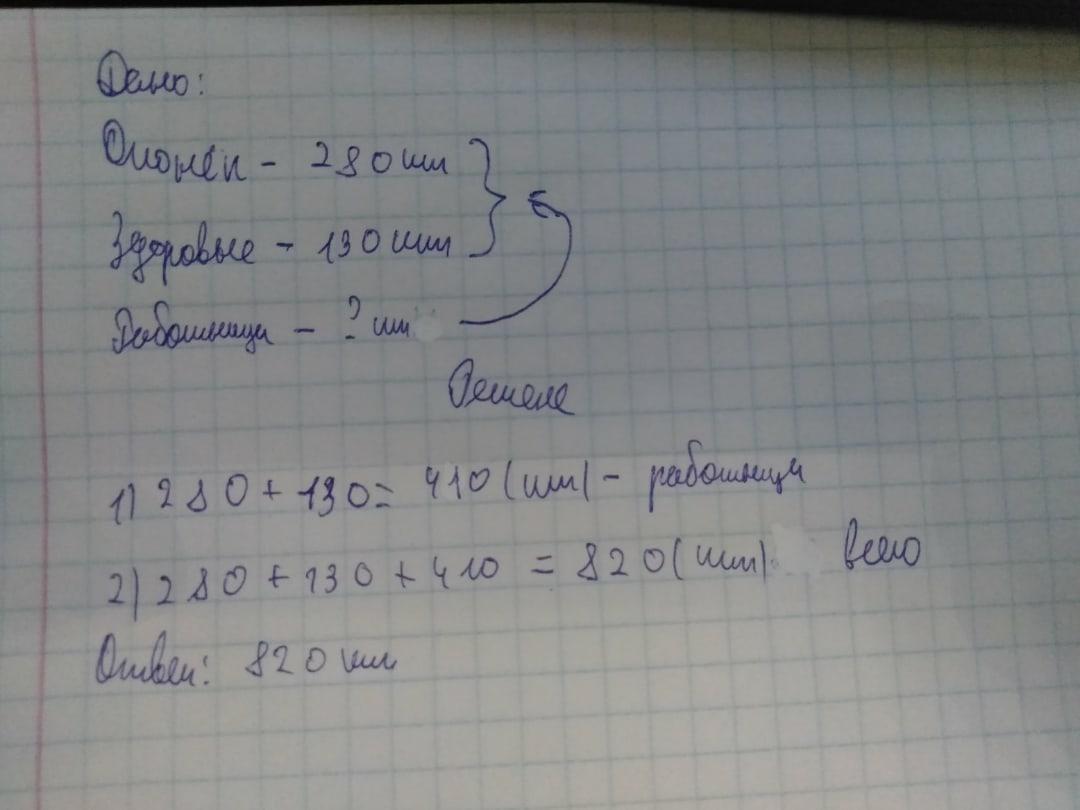 Дано:
Огонёк - 280 шт
Здоровье - 130 шт
Работница - ? шт
Решене
1) 280 + 130 = 410 (шт) - работница
2) 280 + 130 + 410 = 820 (шт) всего
Ответ: 820 шт